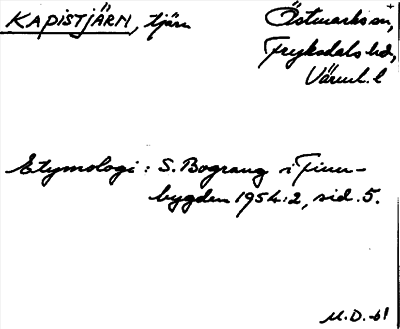 KAPISTJÄRN, tjärn
Östmarks sn,
Fryksdals hd,
Värml. l
Etymologi: S. Bograng i Finn-
bygden 1954:2, sid. 5.
M.D. -61